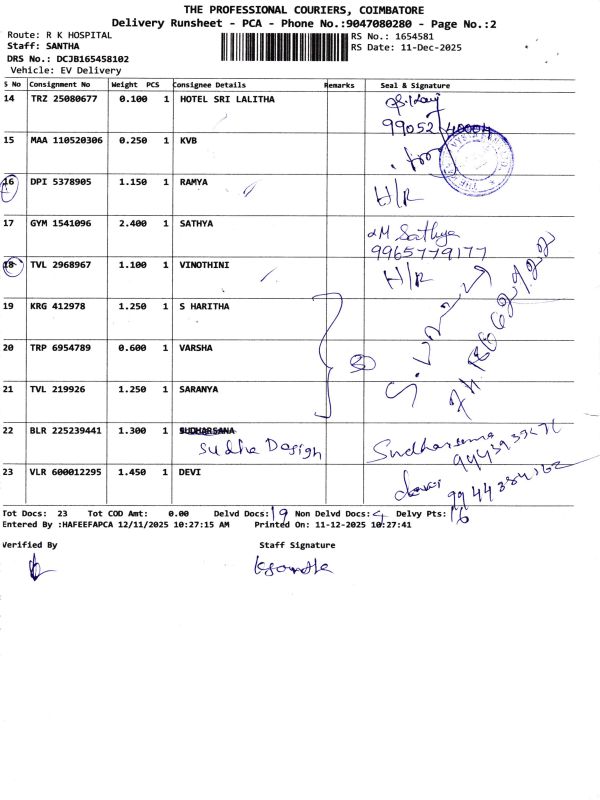 THE PROFESSIONAL COURIERS, COIMBATORE
Delivery Runsheet - PCA - Phone No.:9047080280 - Page No.:2
Route: R K HOSPITAL
RS No.: 1654581
Staff: SANTHA
RS Date: 11-Dec-2025
DRS No.: DCJB165458102
Vehicle: EV Delivery
S No Consignment No Weight PCS Consignee Details Remarks Seal & Signature
14 TRZ 25080677 0.100 1 HOTEL SRI LALITHA
99052 40004
15 MAA 110520306 0.250 1 KVB
16 DPI 5378905 1.150 1 RAMYA H/R
17 GYM 1541096 2.400 1 SATHYA Sathya
9965779177
18 TVL 2968967 1.100 1 VINOTHINI H/R
19 KRG 412978 1.250 1 S HARITHA
20 TRP 6954789 0.600 1 VARSHA
21 TVL 219926 1.250 1 SARANYA
22 BLR 225239441 1.300 1 SUDHARSANA Sudharsana
Sudha Design
23 VLR 600012295 1.450 1 DEVI
Tot Docs: 23 Tot COD Amt: 0.00 Delvd Docs: 19 Non Delvd Docs: 4 Delvy Pts: 16
Entered By :HAFEEFAPCA 12/11/2025 10:27:15 AM Printed On: 11-12-2025 10:27:41
Verified By Staff Signature